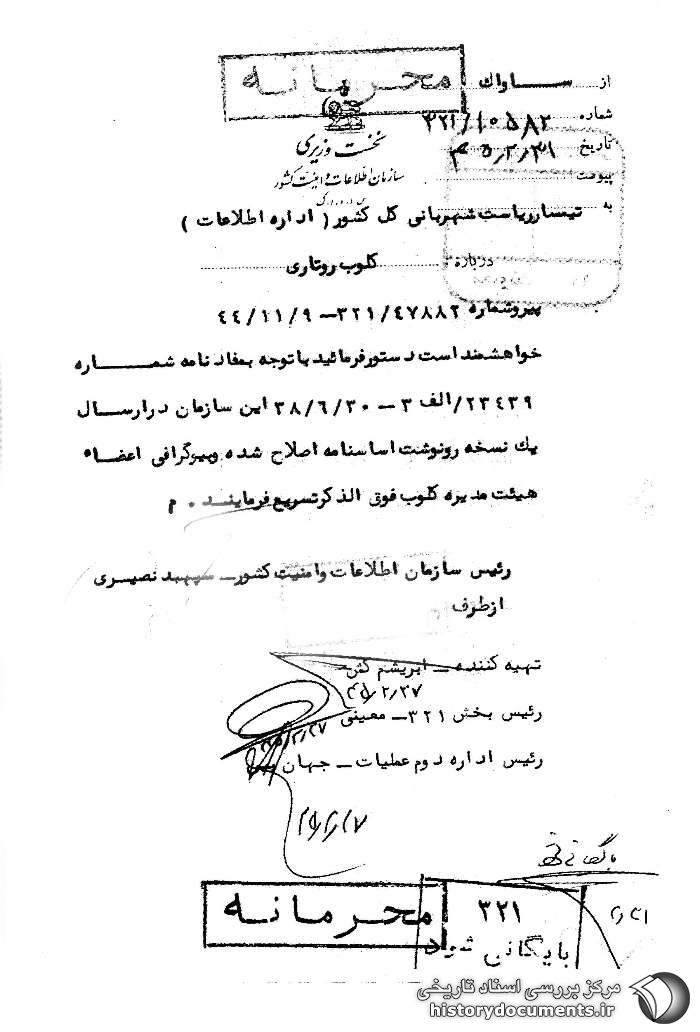 محرمانه
از ســاواك
شماره ۳۲۱/۱۰۵۸۲
تاریخ ۴۵/۲/۳۱
پیوست
نخست وزیری
سازمان اطلاعات و امنیت کشور
س.ا.و.ا.ک
به
تیسار ریاست شهربانی کل کشور ( اداره اطلاعات )
درباره : کلوب روتاری
پیرو شماره ۳۲۱/۴۷۸۸۲ – ۴۴/۱۱/۹
خواهشمند است دستور فرمائید با توجه بمفاد نامه شمــاره
۲۳۴۳۹/الف ۳ – ۳۸/۶/۳۰ این سازمان در ارسال
یك نسخه رونوشت اساسنامه اصلاح شده وبیوگرافی اعضاء
هیئت مدیره کلوب فوق الذکر تسریع فرماینــد . م
رئیس سازمان اطلاعات وامنیت کشور ــ سپهبد نصیــری
از طرف
تهیه کننده ــ ابریشم کش
۴۵/۲/۲۷
رئیس بخش ۳۲۱ــ معینی
۴۵/۲/۲۷
رئیس اداره دوم عملیات ــ جهان بین
۲/۲۷
بایگانی
محرمانه
۳۲۱
بایگانی شود
مرکز بررسی اسناد تاریخی
historydocuments.ir